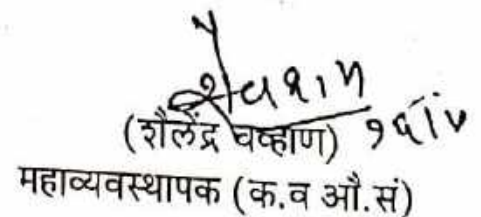 (शैलेंद्र चव्हाण)
महाव्यवस्थापक (क.व औ.सं)